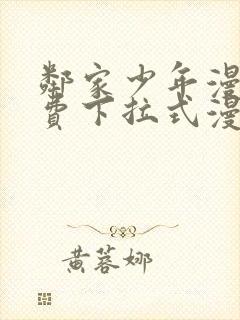 鄰家少年漫
費下拉式漫
黃蓉娜